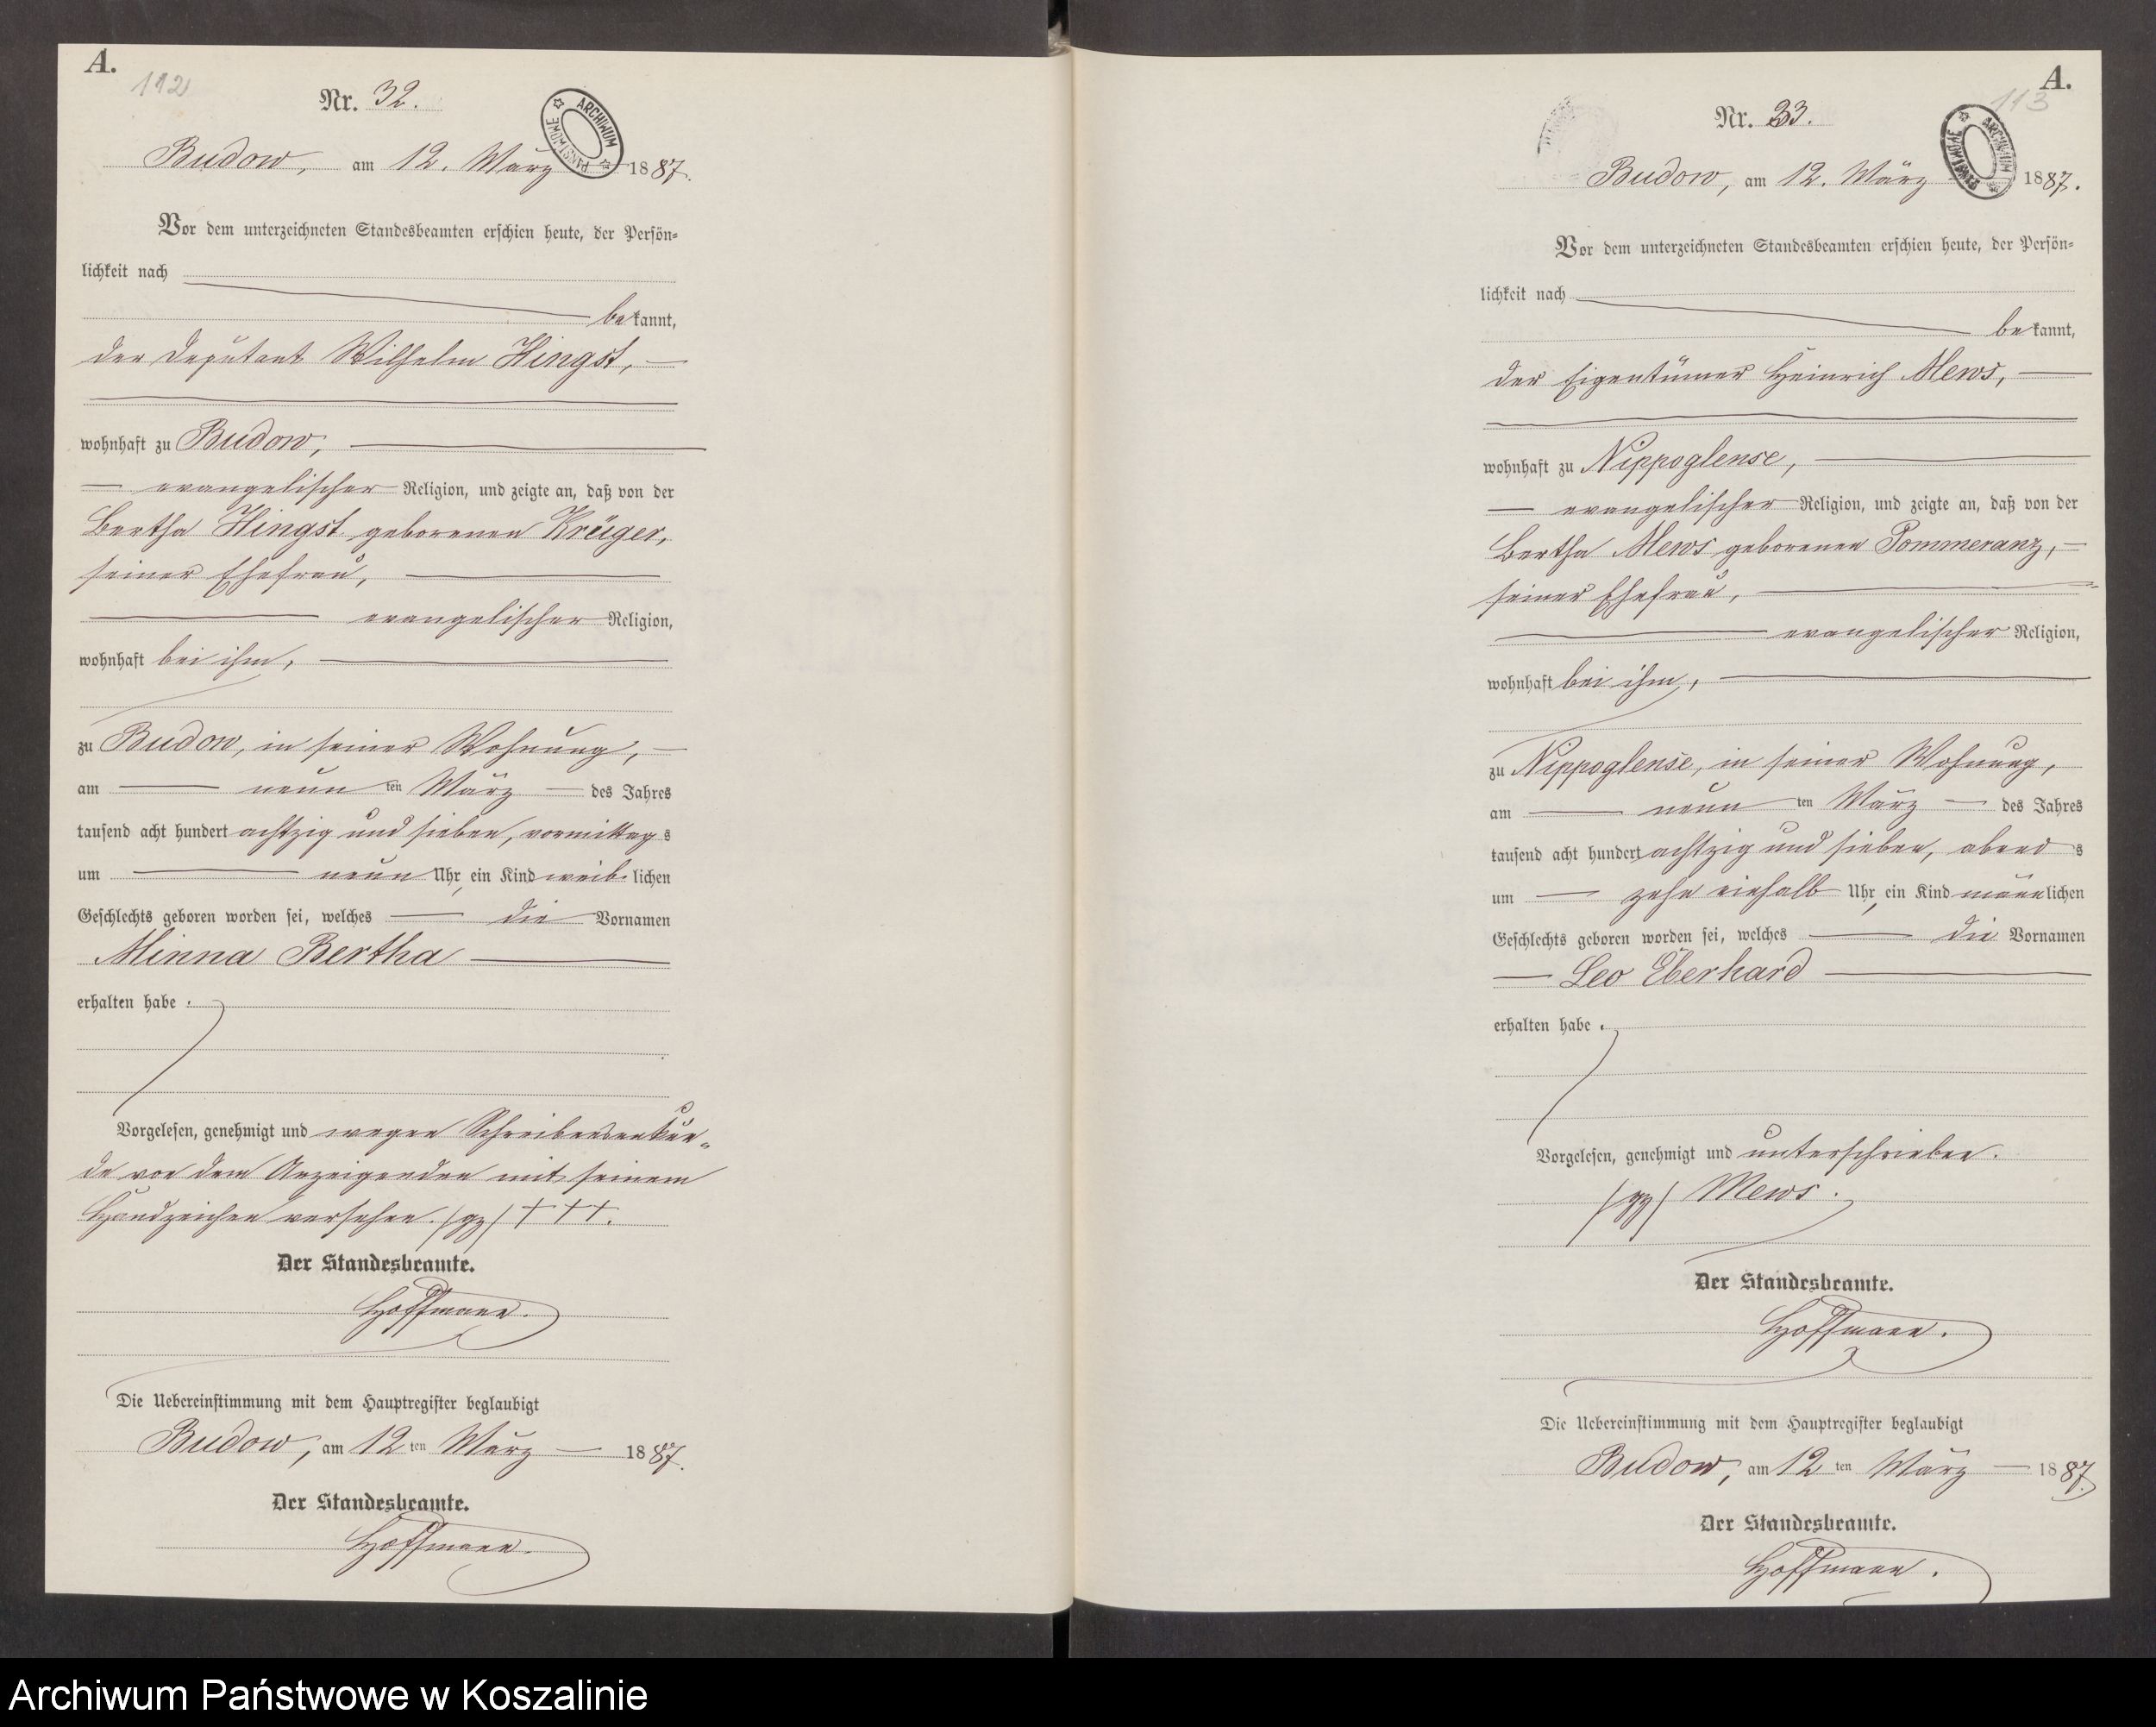 A.
112
Nr. 32.
ARCHIWUM PAŃSTWOWE
Budow, am 12. März 1887.
Vor dem unterzeichneten Standesbeamten erschien heute, der Persön=
lichkeit nach
bekannt,
der Deputant Wilhelm Hingst,
wohnhaft zu Budow,
evangelischer Religion, und zeigte an, daß von der
Bertha Hingst geborenen Krüger,
seiner Ehefrau,
evangelischer Religion,
wohnhaft bei ihm,
zu Budow, in seiner Wohnung,
am neun ten März des Jahres
tausend acht hundert achtzig und sieben, vormittags
um neun Uhr, ein Kind weiblichen
Geschlechts geboren worden sei, welches die Vornamen
Minna Bertha
erhalten habe.
Vorgelesen, genehmigt und wegen Schreibensunkun=
de von dem Anzeigenden mit seinem
Handzeichen versehen. /gz/ +++.
Der Standesbeamte.
Hoffmann.
Die Uebereinstimmung mit dem Hauptregister beglaubigt
Budow, am 12 ten März 1887.
Der Standesbeamte.
Hoffmann.
A.
113
Nr. 33.
ARCHIWUM PAŃSTWOWE
Budow, am 12. März 1887.
Vor dem unterzeichneten Standesbeamten erschien heute, der Persön=
lichkeit nach
bekannt,
der Eigentümer Heinrich Mews,
wohnhaft zu Nippoglense,
evangelischer Religion, und zeigte an, daß von der
Bertha Mews geborenen Pommeranz,
seiner Ehefrau,
evangelischer Religion,
wohnhaft bei ihm,
zu Nippoglense, in seiner Wohnung,
am neun ten März des Jahres
tausend acht hundert achtzig und sieben, abends
um zehn einhalb Uhr, ein Kind männlichen
Geschlechts geboren worden sei, welches die Vornamen
Leo Eberhard
erhalten habe.
Vorgelesen, genehmigt und unterschrieben.
/gz/ Mews.
Der Standesbeamte.
Hoffmann.
Die Uebereinstimmung mit dem Hauptregister beglaubigt
Budow, am 12 ten März 1887.
Der Standesbeamte.
Hoffmann.
Archiwum Państwowe w Koszalinie